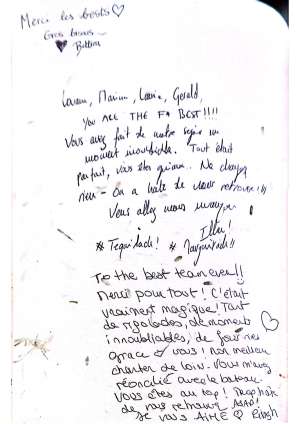 Merci les bests ♡
Gros bisous
♥
Marion, Gerald,
You ALL THE BEST!!!!
Vous avez fait de notre séjour un
moment inoubliable. Tout était
parfait, vous êtes Ne changez
rien - On a hâte de vous retrouver !!!
Vous allez nous manquer
#
To the best team ever!!
Merci pour tout! C'était
vraiment magique! Tant
de rigolades, de moments
innoubliables, de fou ries
grace à vous! mon meilleur
charter de loin. Vous m'avez
réconcilié avec le bateau.
Vous êtes au top! Trop hate
de vous retrouver ASAP!
Je vous AIME ♡